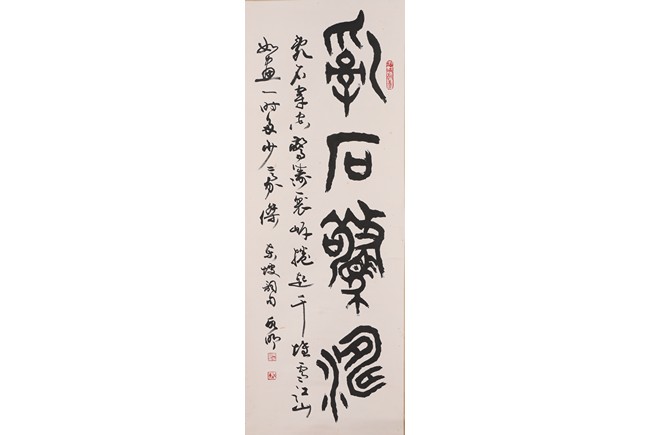 亂石驚濤
亂石穿空驚濤裂岸捲起千堆雪江山
如畫一時多少豪傑 東坡詞句